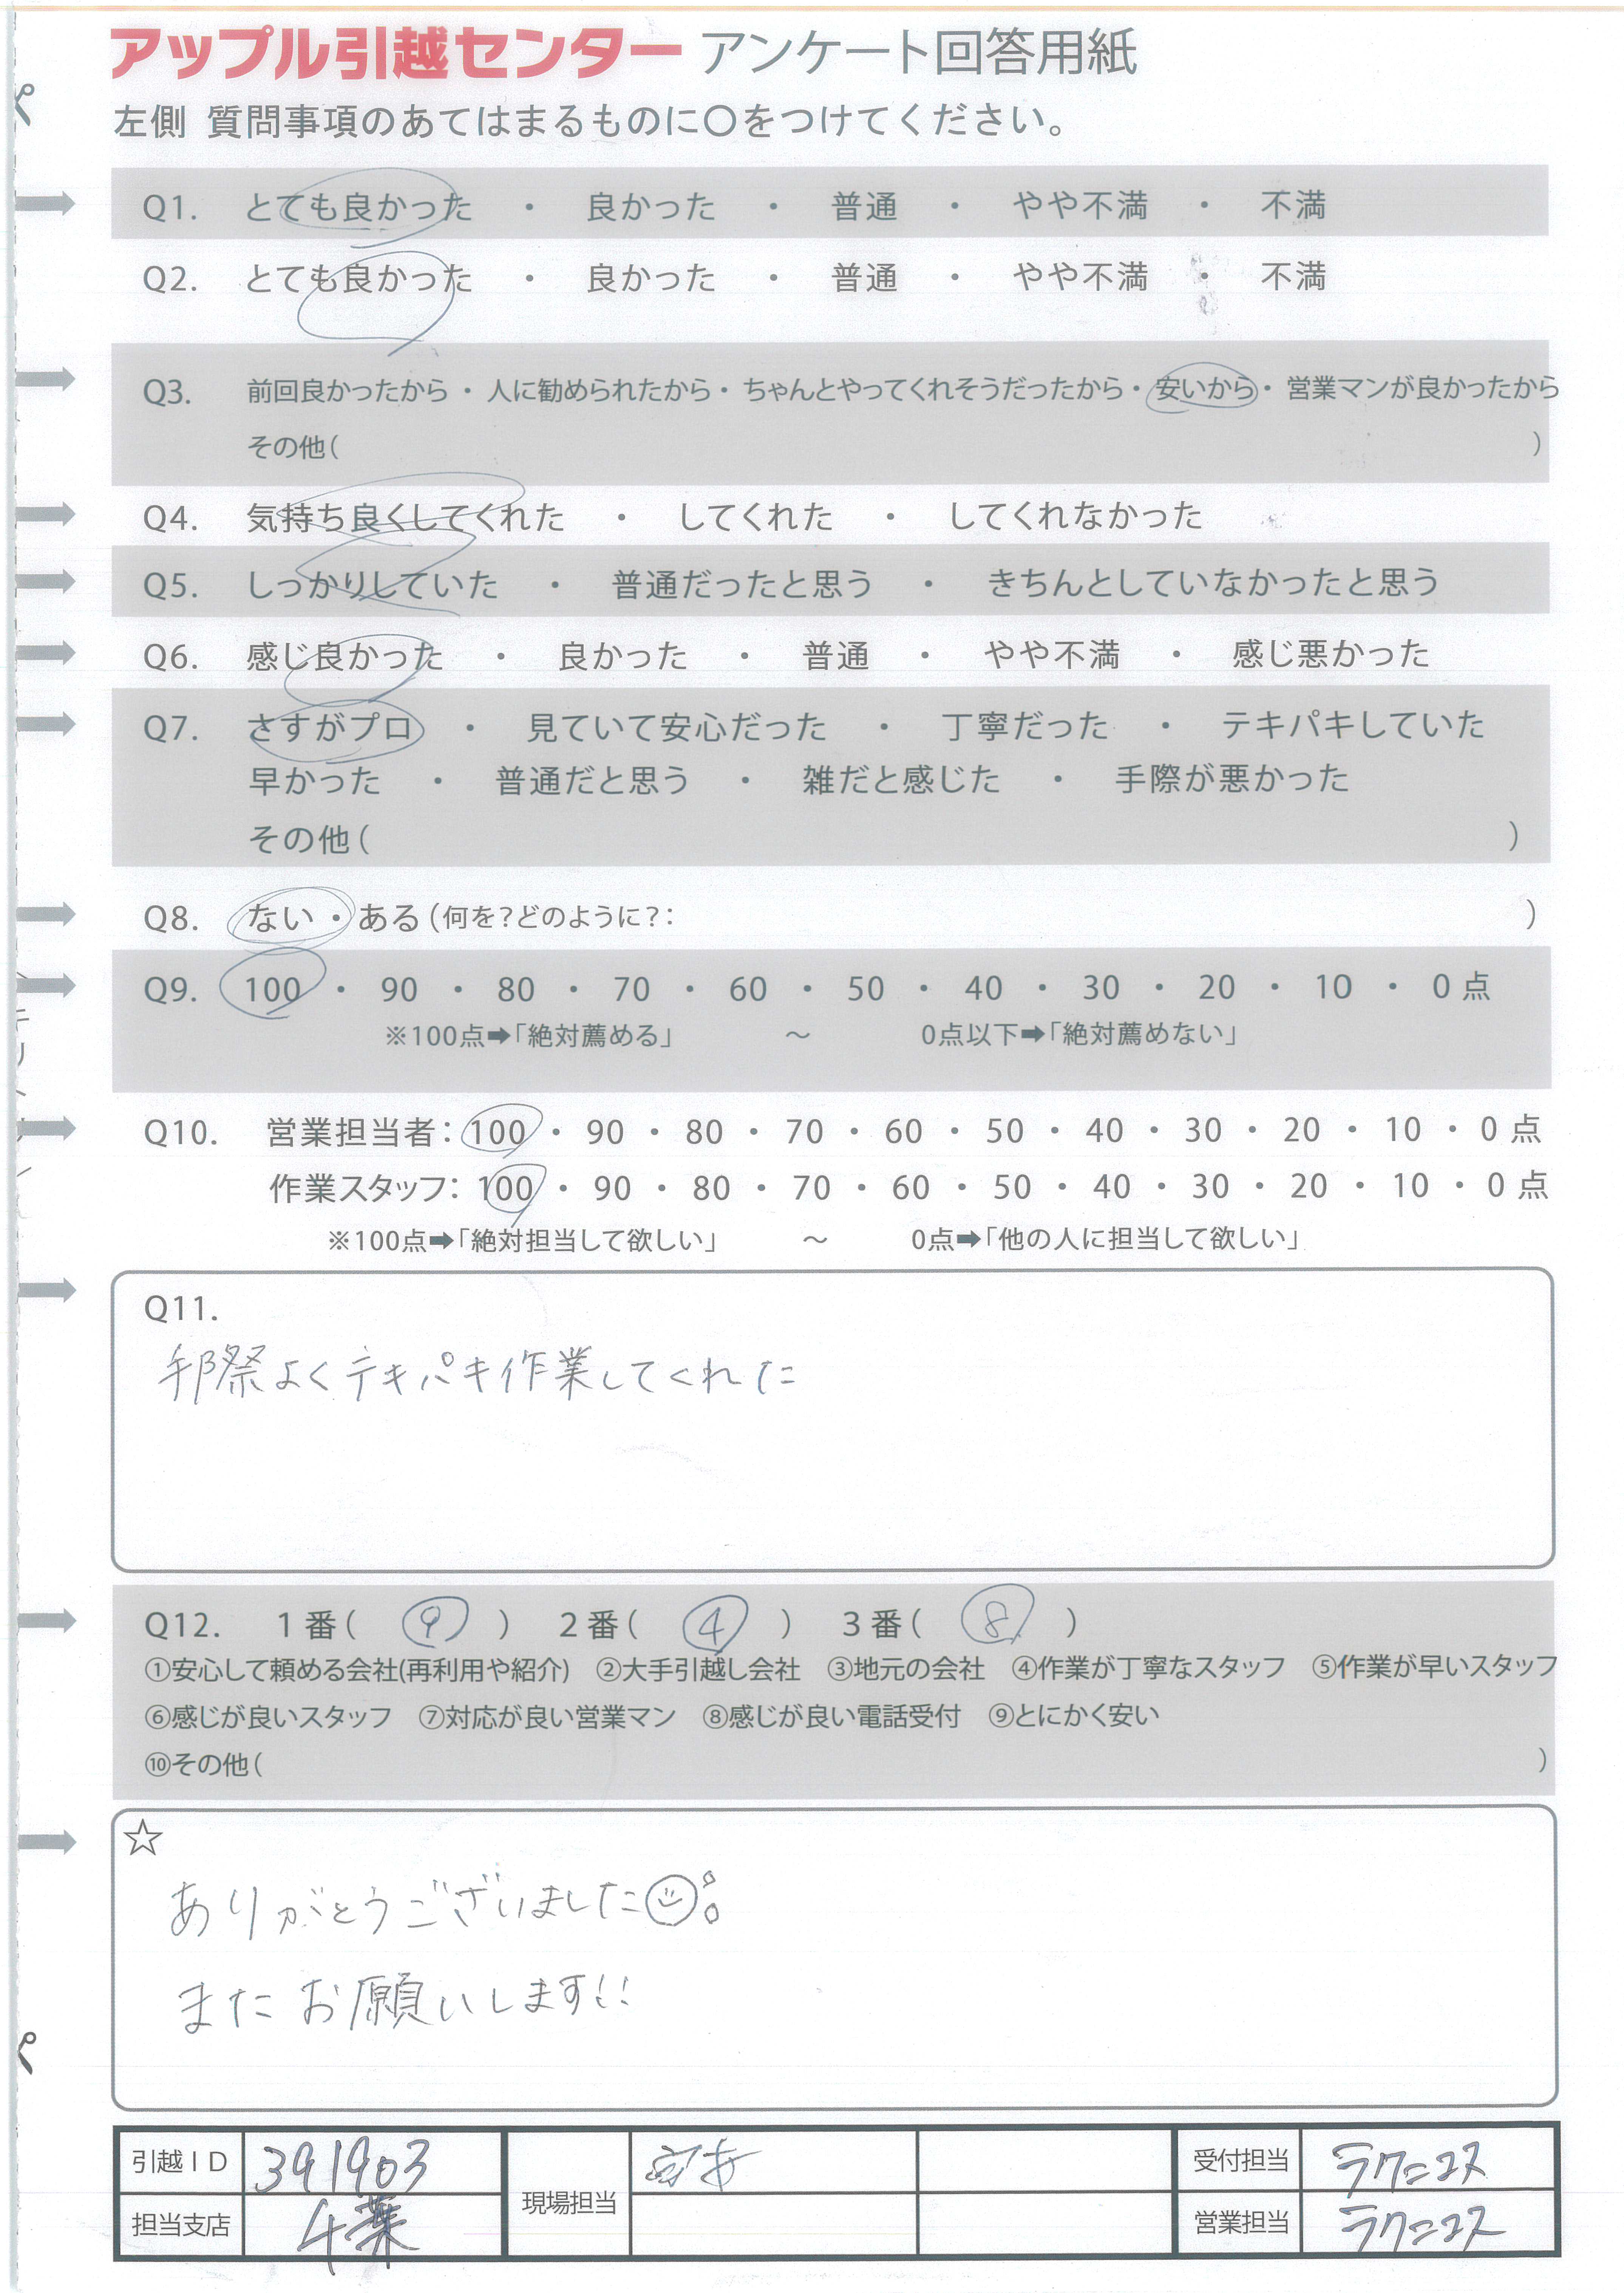 アップル引越センター アンケート回答用紙
左側 質問事項のあてはまるものに〇をつけてください。
Q1. とても良かった ・ 良かった ・ 普通 ・ やや不満 ・ 不満
Q2. とても良かった ・ 良かった ・ 普通 ・ やや不満 ・ 不満
Q3. 前回良かったから・人に勧められたから・ちゃんとやってくれそうだったから・安いから・営業マンが良かったから
その他( )
Q4. 気持ち良くしてくれた ・ してくれた ・ してくれなかった
Q5. しっかりしていた ・ 普通だったと思う ・ きちんとしていなかったと思う
Q6. 感じ良かった ・ 良かった ・ 普通 ・ やや不満 ・ 感じ悪かった
Q7. さすがプロ ・ 見ていて安心だった ・ 丁寧だった ・ テキパキしていた
早かった ・ 普通だと思う ・ 雑だと感じた ・ 手際が悪かった
その他( )
Q8. ない・ある(何を?どのように?: )
Q9. 100 ・ 90 ・ 80 ・ 70 ・ 60 ・ 50 ・ 40 ・ 30 ・ 20 ・ 10 ・ 0点
※100点➡「絶対薦める」 〜 0点以下➡「絶対薦めない」
Q10. 営業担当者:100 ・ 90 ・ 80 ・ 70 ・ 60 ・ 50 ・ 40 ・ 30 ・ 20 ・ 10 ・0点
作業スタッフ:100 ・ 90 ・ 80 ・ 70 ・ 60 ・ 50 ・ 40 ・ 30 ・ 20 ・ 10 ・0点
※100点➡「絶対担当して欲しい」 〜 0点➡「他の人に担当して欲しい」
Q11.
手際よくテキパキ作業してくれた
Q12. 1番( ⑨ ) 2番( ④ ) 3番( ⑧ )
①安心して頼める会社(再利用や紹介) ②大手引越し会社 ③地元の会社 ④作業が丁寧なスタッフ ⑤作業が早いスタッフ
⑥感じが良いスタッフ ⑦対応が良い営業マン ⑧感じが良い電話受付 ⑨とにかく安い
⑩その他( )
☆
ありがとうございました☺
またお願いします!!
引越ID 391903 現場担当 受付担当 ラクニコス
担当支店 千葉 営業担当 ラクニコス